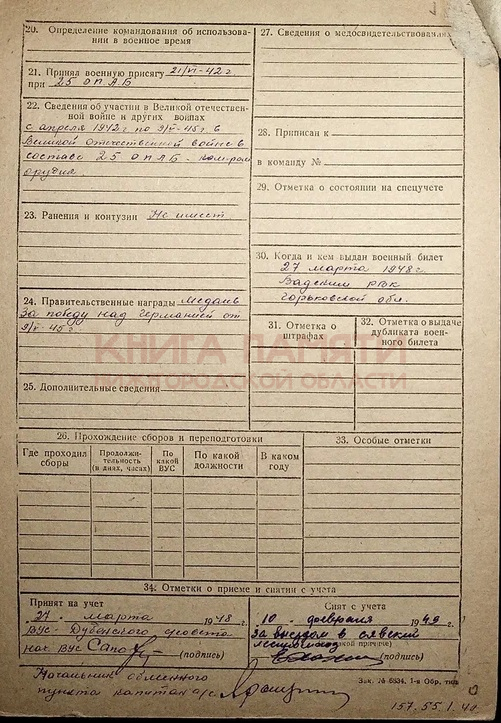 20. Определение командования об использова-
нии в военное время
21. Принял военную присягу 21/VI-42 г.
при 25 ОПАБ
22. Сведения об участии в Великой отечествен-
ной войне и других войнах
с апреля 1942 г по 9/V-45 г. в
Великой отечественной войне в
составе 25 ОПАБ - ком-ром
орудия.
23. Ранения и контузии Не имеет
24. Правительственные награды медаль
За победу над Германией от
9/V-45 г.
25. Дополнительные сведения
27. Сведения о медосвидетельствованиях
28. Приписан к
в команду №
29. Отметка о состоянии на спецучете
30. Когда и кем выдан военный билет
27 марта 1948 г.
Вадским РВК
Горьковской обл.
31. Отметка о
штрафах
32. Отметка о выдаче
дубликата воен-
ного билета
КНИГА ПАМЯТИ
ОРОДСКОЙ ОБЛАСТИ
26. Прохождение сборов и переподготовки
Где проходил
сборы
Продолжи-
тельность
(в днях, часах)
По
какой
ВУС
По какой
должности
В каком
году
33. Особые отметки
34. Отметки о приеме и снятии с учета
Принят на учет
27 марта 1948 г.
ВУС - Дубенского с/совета
нач. ВУС (подпись)
Снят с учета
10 февраля 1949 г.
За выездом в
(подпись)
Начальник обменного
пункта капитан а/с
Зак. № 6834. 1-я Обр. тип.
157.55.1.40